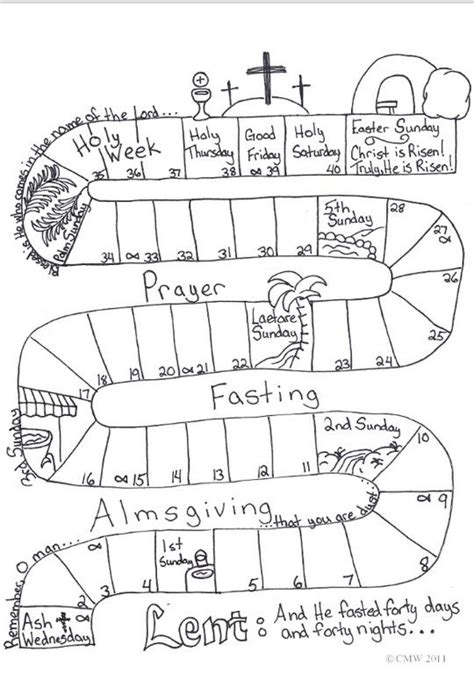 Blessed is He who comes in the name of the Lord...
Holy Week
Holy Thursday
Good Friday
Holy Saturday
Easter Sunday
Christ is Risen!
Truly, He is Risen!
35 36 37 38 ∝ 39 40
Palm Sunday
34 ∝ 33 32 31 30 29
5th Sunday
28
27 ∝
26
25
Prayer
Laetare Sunday
17 18 19 20 ∝ 21 22 23 24
Fasting
3rd Sunday
2nd Sunday
16 ∝ 15 14 13 12 11
10
∝ 9
8
7
Almsgiving
...that you are dust...
Remember, O man...
∝
2 3 4
1st Sunday
5 6
Ash Wednesday
Lent:
And He fasted forty days
and forty nights...
©CMW 2011